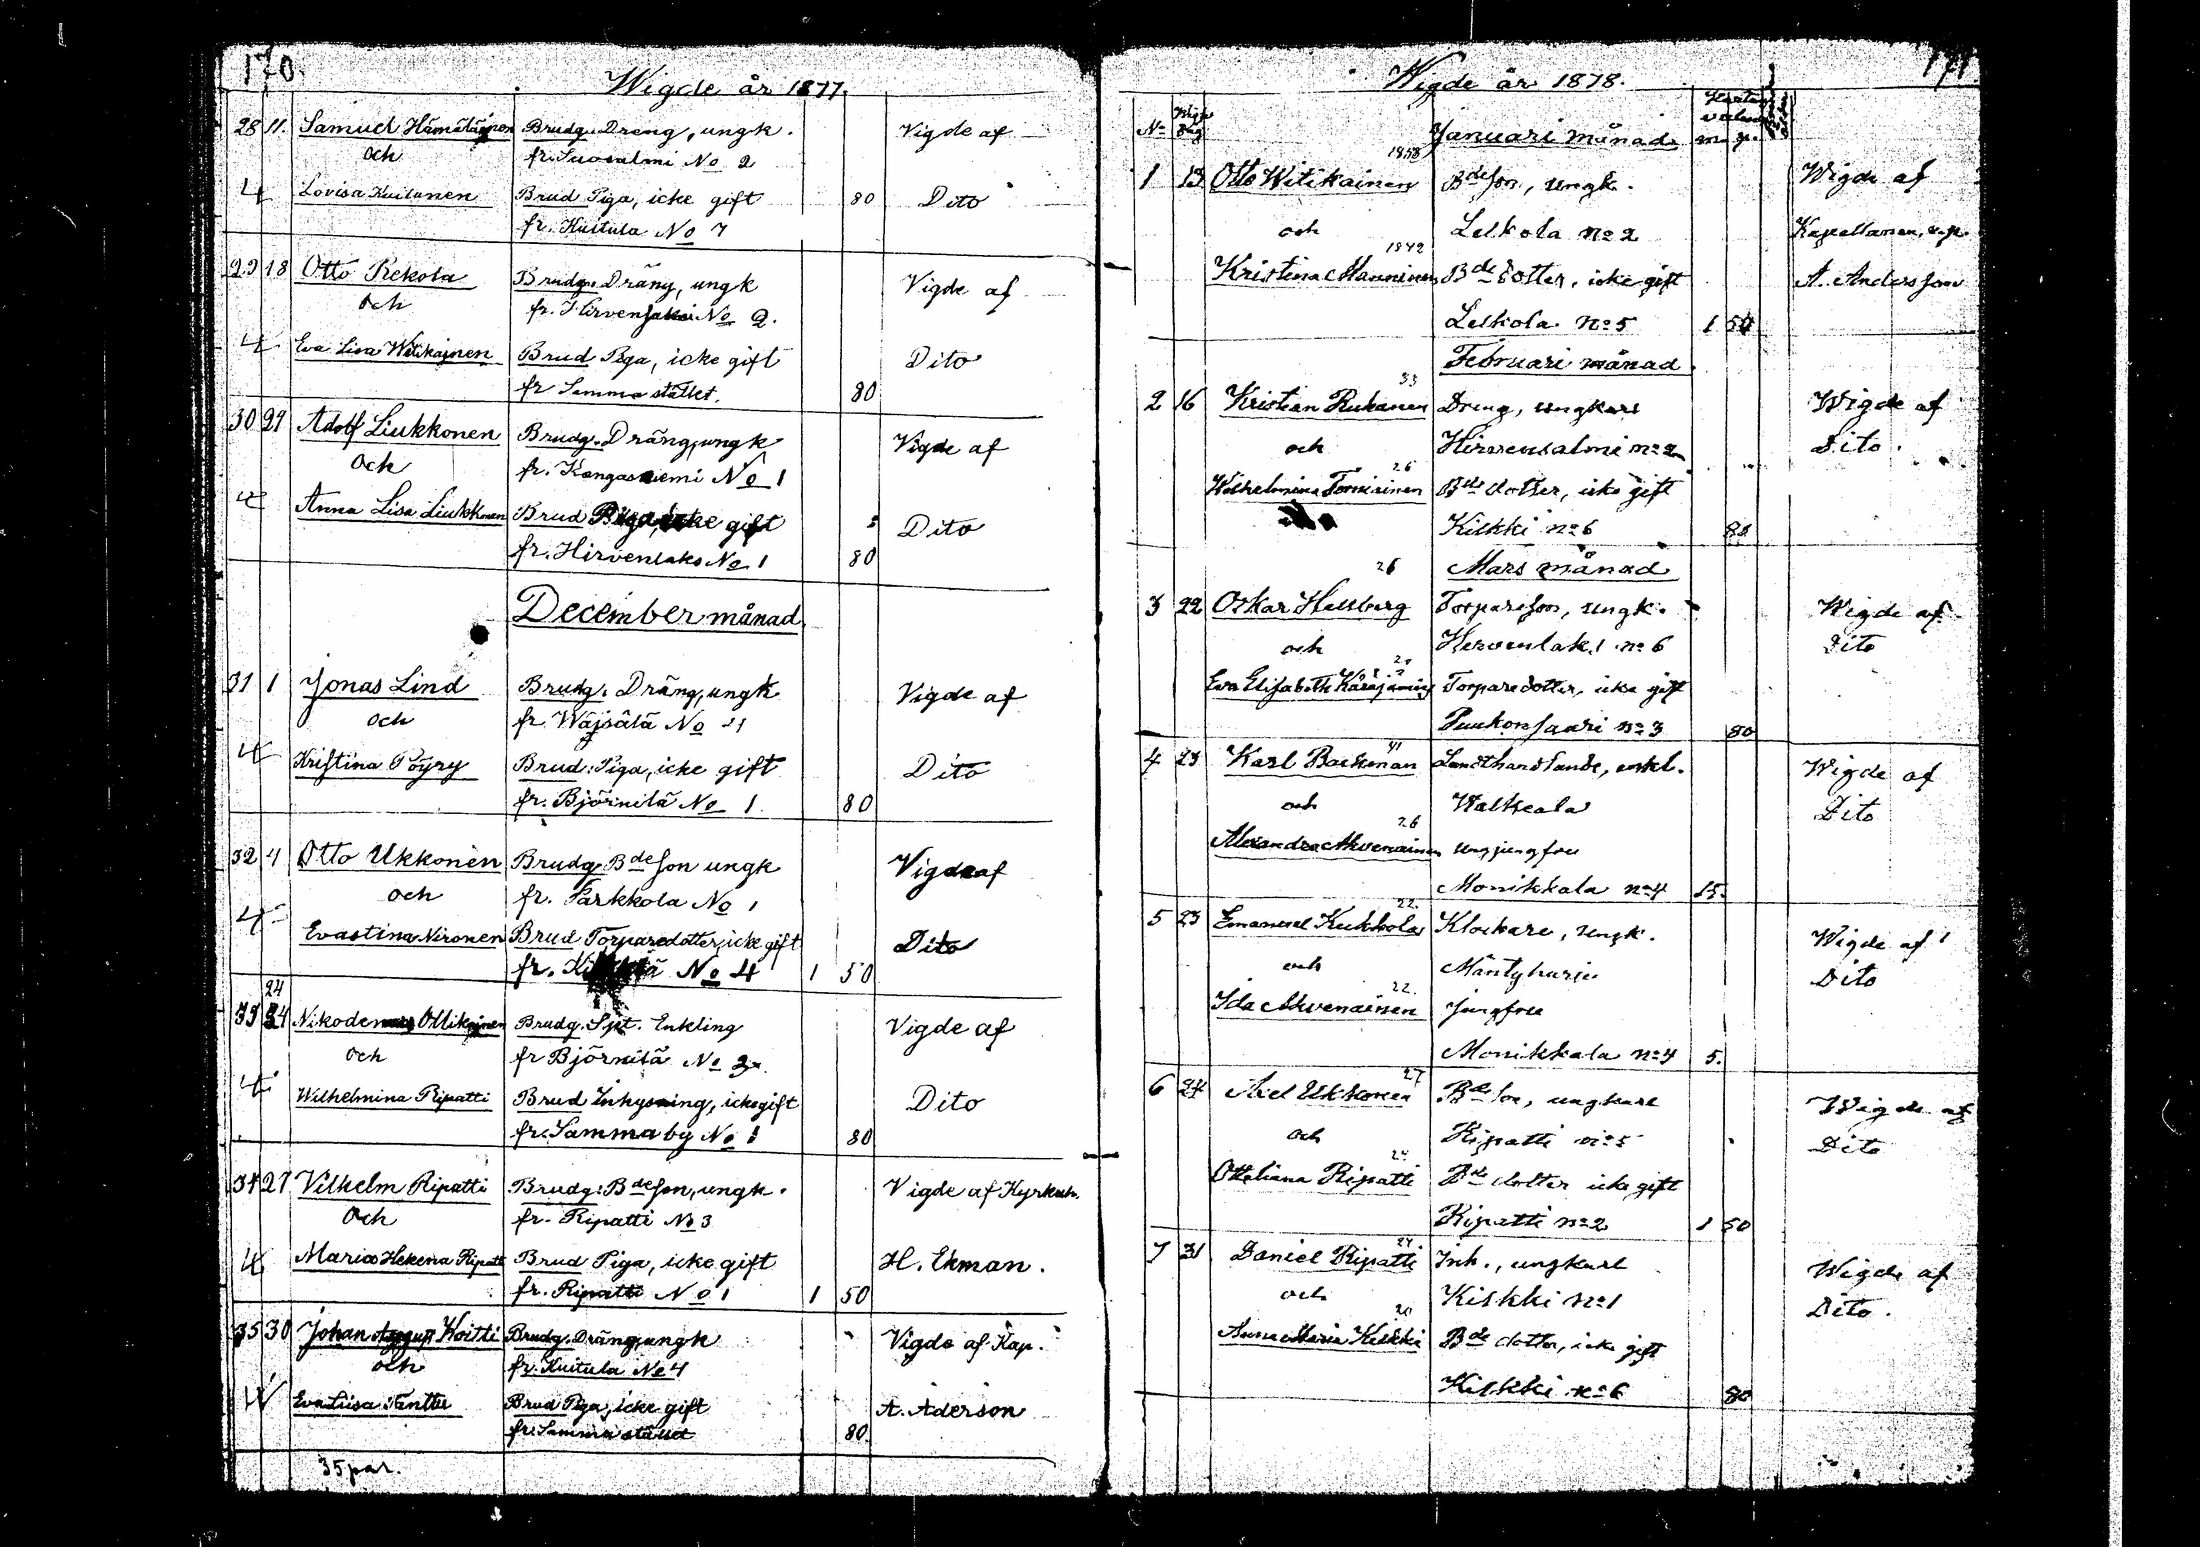 170.
Wigde år 1877.
28 11. Samuel Hämäläinen Brudg. Dreng, ungk. Vigde af
och fr. Suosalmi No 2
4 Lovisa Kuitunen Brud Piga, icke gift 80 Dito
fr. Kuitula No 7
29 18 Otto Rekola Brudg. Dräng, ungk Vigde af
och fr. Hirvensalmi No 2.
4 Eva Lisa Witikajnen Brud Piga, icke gift Dito
fr Samma stället. 80
30 29 Adolf Liukkonen Brudg. Dräng, ungk Vigde af
och fr. Kangasniemi No 1
4 Anna Lisa Liukkonen Brud Piga, icke gift Dito
fr. Hirvenlaks No 1 80
December månad.
31 1 Jonas Lind Brudg. Dräng, ungk Vigde af
och fr. Wäjsälä No 21
4 Kristina Pöyry Brud: Piga, icke gift Dito
fr. Björnilä No 1. 80
32 4 Otto Ukkonen Brudg. Bde son ungk Vigde af
och fr. Parkkola No 1
4 Evastina Nironen Brud Torparedotter, icke gift Dito
fr. No 4 1 50
24
33 24 Nikodemus Ollikajnen Brudg. Spt. Enkling Vigde af
och fr Björnilä No 3
4 Wilhelmina Ripatti Brud Inhysning, icke gift Dito
fr. Samma by No 1 80
34 27 Vilhelm Ripatti Brudg: Bde son, ungk. Vigde af Kyrkoh.
och fr. Ripatti No 3
4 Maria Helena Ripatti Brud Piga, icke gift H. Ekman.
fr. Ripatti No 1 1 50
35 30 Johan Koitti Brudg. Dräng, ungk Vigde af Kap.
och fr. Kuitula No 4
Eva Liisa Tanttu Brud Piga, icke gift A. Aderson
fr. Samma stället 80
35 par.
171
Wigde år 1878.
No Januari månad
1858
1 13 Otto Witikainen Bde son, ungk. Wigde af
och Lelkola no 2 Kapellanen, v.p.
1842
Kristina Manninen Bde dotter, icke gift A. Andersson
Lelkola no 5 1 50
Februari månad
53
2 16 Kristian Rukanen Dreng, ungkarl Wigde af
och Hirvensalmi no 2 Dito.
26
Wilhelmina Torniainen Bde dotter, icke gift
Kilkki no 6 80
Mars månad
26
3 22 Oskar Hallberg Torpareson, ungk. Wigde af
och Hirvenlaks no 6 Dito
Eva Elisabeth Torparedotter, icke gift
Puukonsaari no 3 80
41
4 23 Karl Backman Landthandlande, enkl. Wigde af
och Walkeala Dito
26
Alexandra Ahvenainen ungjungfru
Monikkala no 4 15.
22.
5 23 Emanuel Kukkola Klockare, ungk. Wigde af
och Mäntyharju Dito
22.
Ida Ahvenainen Jungfru
Monikkala no 4 5.
27
6 24 Axel Ukkonen Bde son, ungkarl Wigde af
och Ripatti no 5 Dito
24
Otteliana Ripatti Bde dotter icke gift
Ripatti no 2 1 50
24
7 31 Daniel Ripatti Inh., ungkarl Wigde af
och Kilkki no 1 Dito.
20
Anna Maria Kilkki Bde dotter, icke gift
Kilkki no 6 80